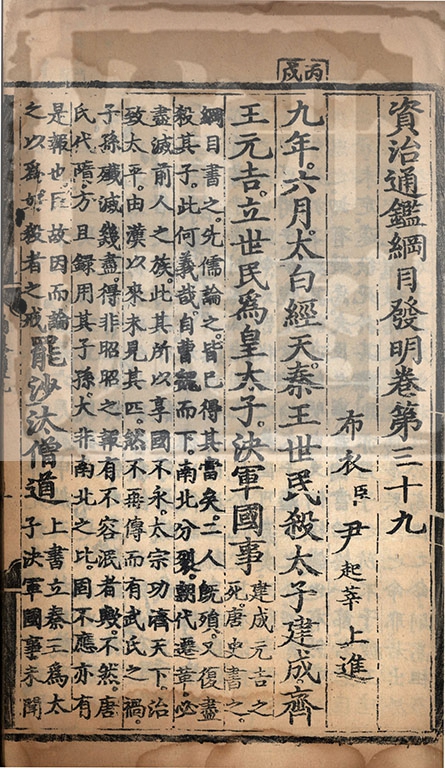 丙戌
資治通鑑綱目發明卷第三十九
布衣臣尹起莘上進
九年。六月。太白經天。秦王世民殺太子建成齊
王元吉。立世民爲皇太子。決軍國事
建成元吉之
死。唐史書之。
綱目書之。先儒論之。皆已得其當矣。二人既殞。又復盡
殺其子。此何義哉。自曹魏而下。南北分裂。朝代遷革。必
盡滅前人之族。此其所以享國不永。太宗功濟天下。治
致太平。由漢以來未見其匹。然不再傳而有武氏之禍。
子孫殲滅幾盡。得非昭昭之報有不容泯者歟。不然。唐
氏代隋。方且録用其子孫。大非南北之比。固不應亦有
是報也。臣故因而論
之以爲好殺者之戒
罷沙汰僧道
上書立秦王爲太
子決軍國事。未聞